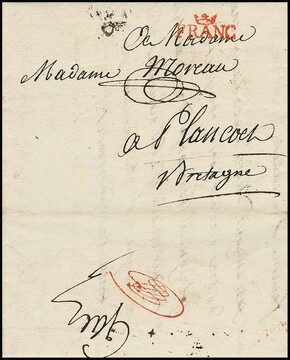 FRANC
A Madame
Madame Moreau
a Plancoet
Bretagne